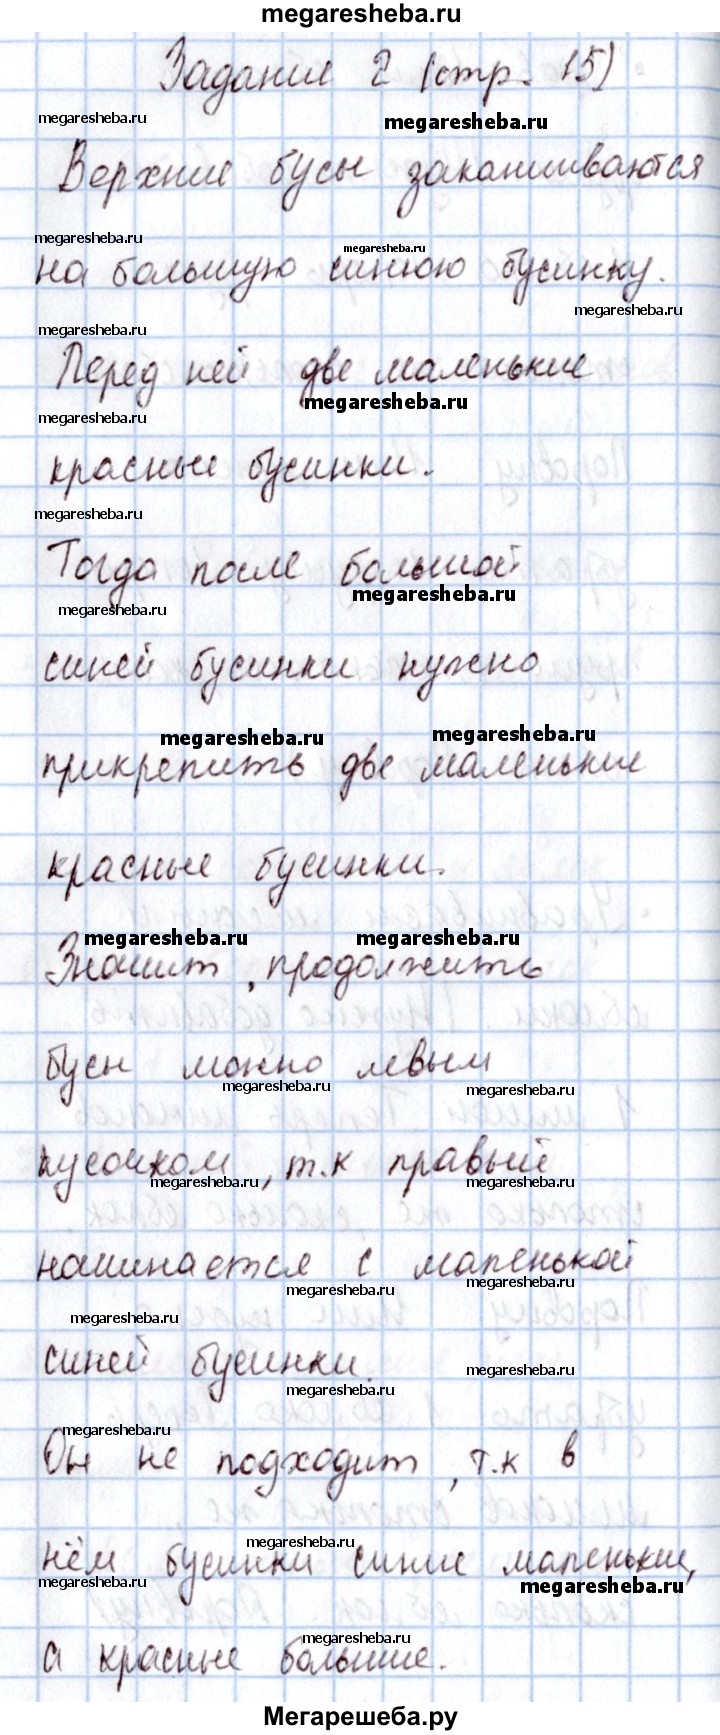 megaresheba.ru
Задание 2 (стр. 15)
megaresheba.ru
megaresheba.ru
Верхние бусы заканчиваются
megaresheba.ru
megaresheba.ru
на большую синюю бусинку.
megaresheba.ru
megaresheba.ru
Перед ней две маленькие
megaresheba.ru
megaresheba.ru
красные бусинки.
megaresheba.ru
Тогда после большой
megaresheba.ru
megaresheba.ru
синей бусинки нужно
megaresheba.ru
megaresheba.ru
прикрепить две маленькие
красные бусинки.
megaresheba.ru
megaresheba.ru
Значит, продолжить
бусы можно левым
megaresheba.ru
megaresheba.ru
кусочком, т.к правый
megaresheba.ru
megaresheba.ru
начинается с маленькой
megaresheba.ru
megaresheba.ru
megaresheba.ru
синей бусинки.
megaresheba.ru
megaresheba.ru
megaresheba.ru
Он не подходит, т.к в
megaresheba.ru
нём бусинки синие маленькие,
megaresheba.ru
megaresheba.ru
megaresheba.ru
а красные большие.
Мегарешеба.ру